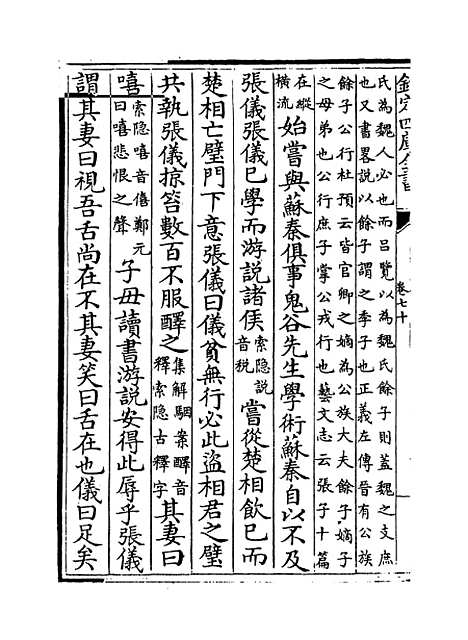 欽定四庫全書
卷七十
氏為魏人必也而吕覽以為魏氏餘子則蓋魏之支庶
也又書畧説以餘子謂之季子也正義左傳晉有公族
餘子公行杜預云皆官卿之嫡為公族大夫餘子嫡子
之母弟也公行庶子掌公戎行也藝文志云張子十篇
在縱
横流
始嘗與蘇秦俱事鬼谷先生學術蘇秦自以不及
張儀張儀已學而游説諸侯
索隐説
音税
嘗從楚相飲已而
楚相亡璧門下意張儀曰儀貧無行必此盗相君之璧
共執張儀掠笞數百不服醳之
集解駰案醳音
釋索隐古釋字
其妻曰
嘻
索隐嘻音僖鄭元
曰嘻悲恨之聲
子毋讀書游説安得此辱乎張儀
謂其妻曰視吾舌尚在不其妻笑曰舌在也儀曰足矣